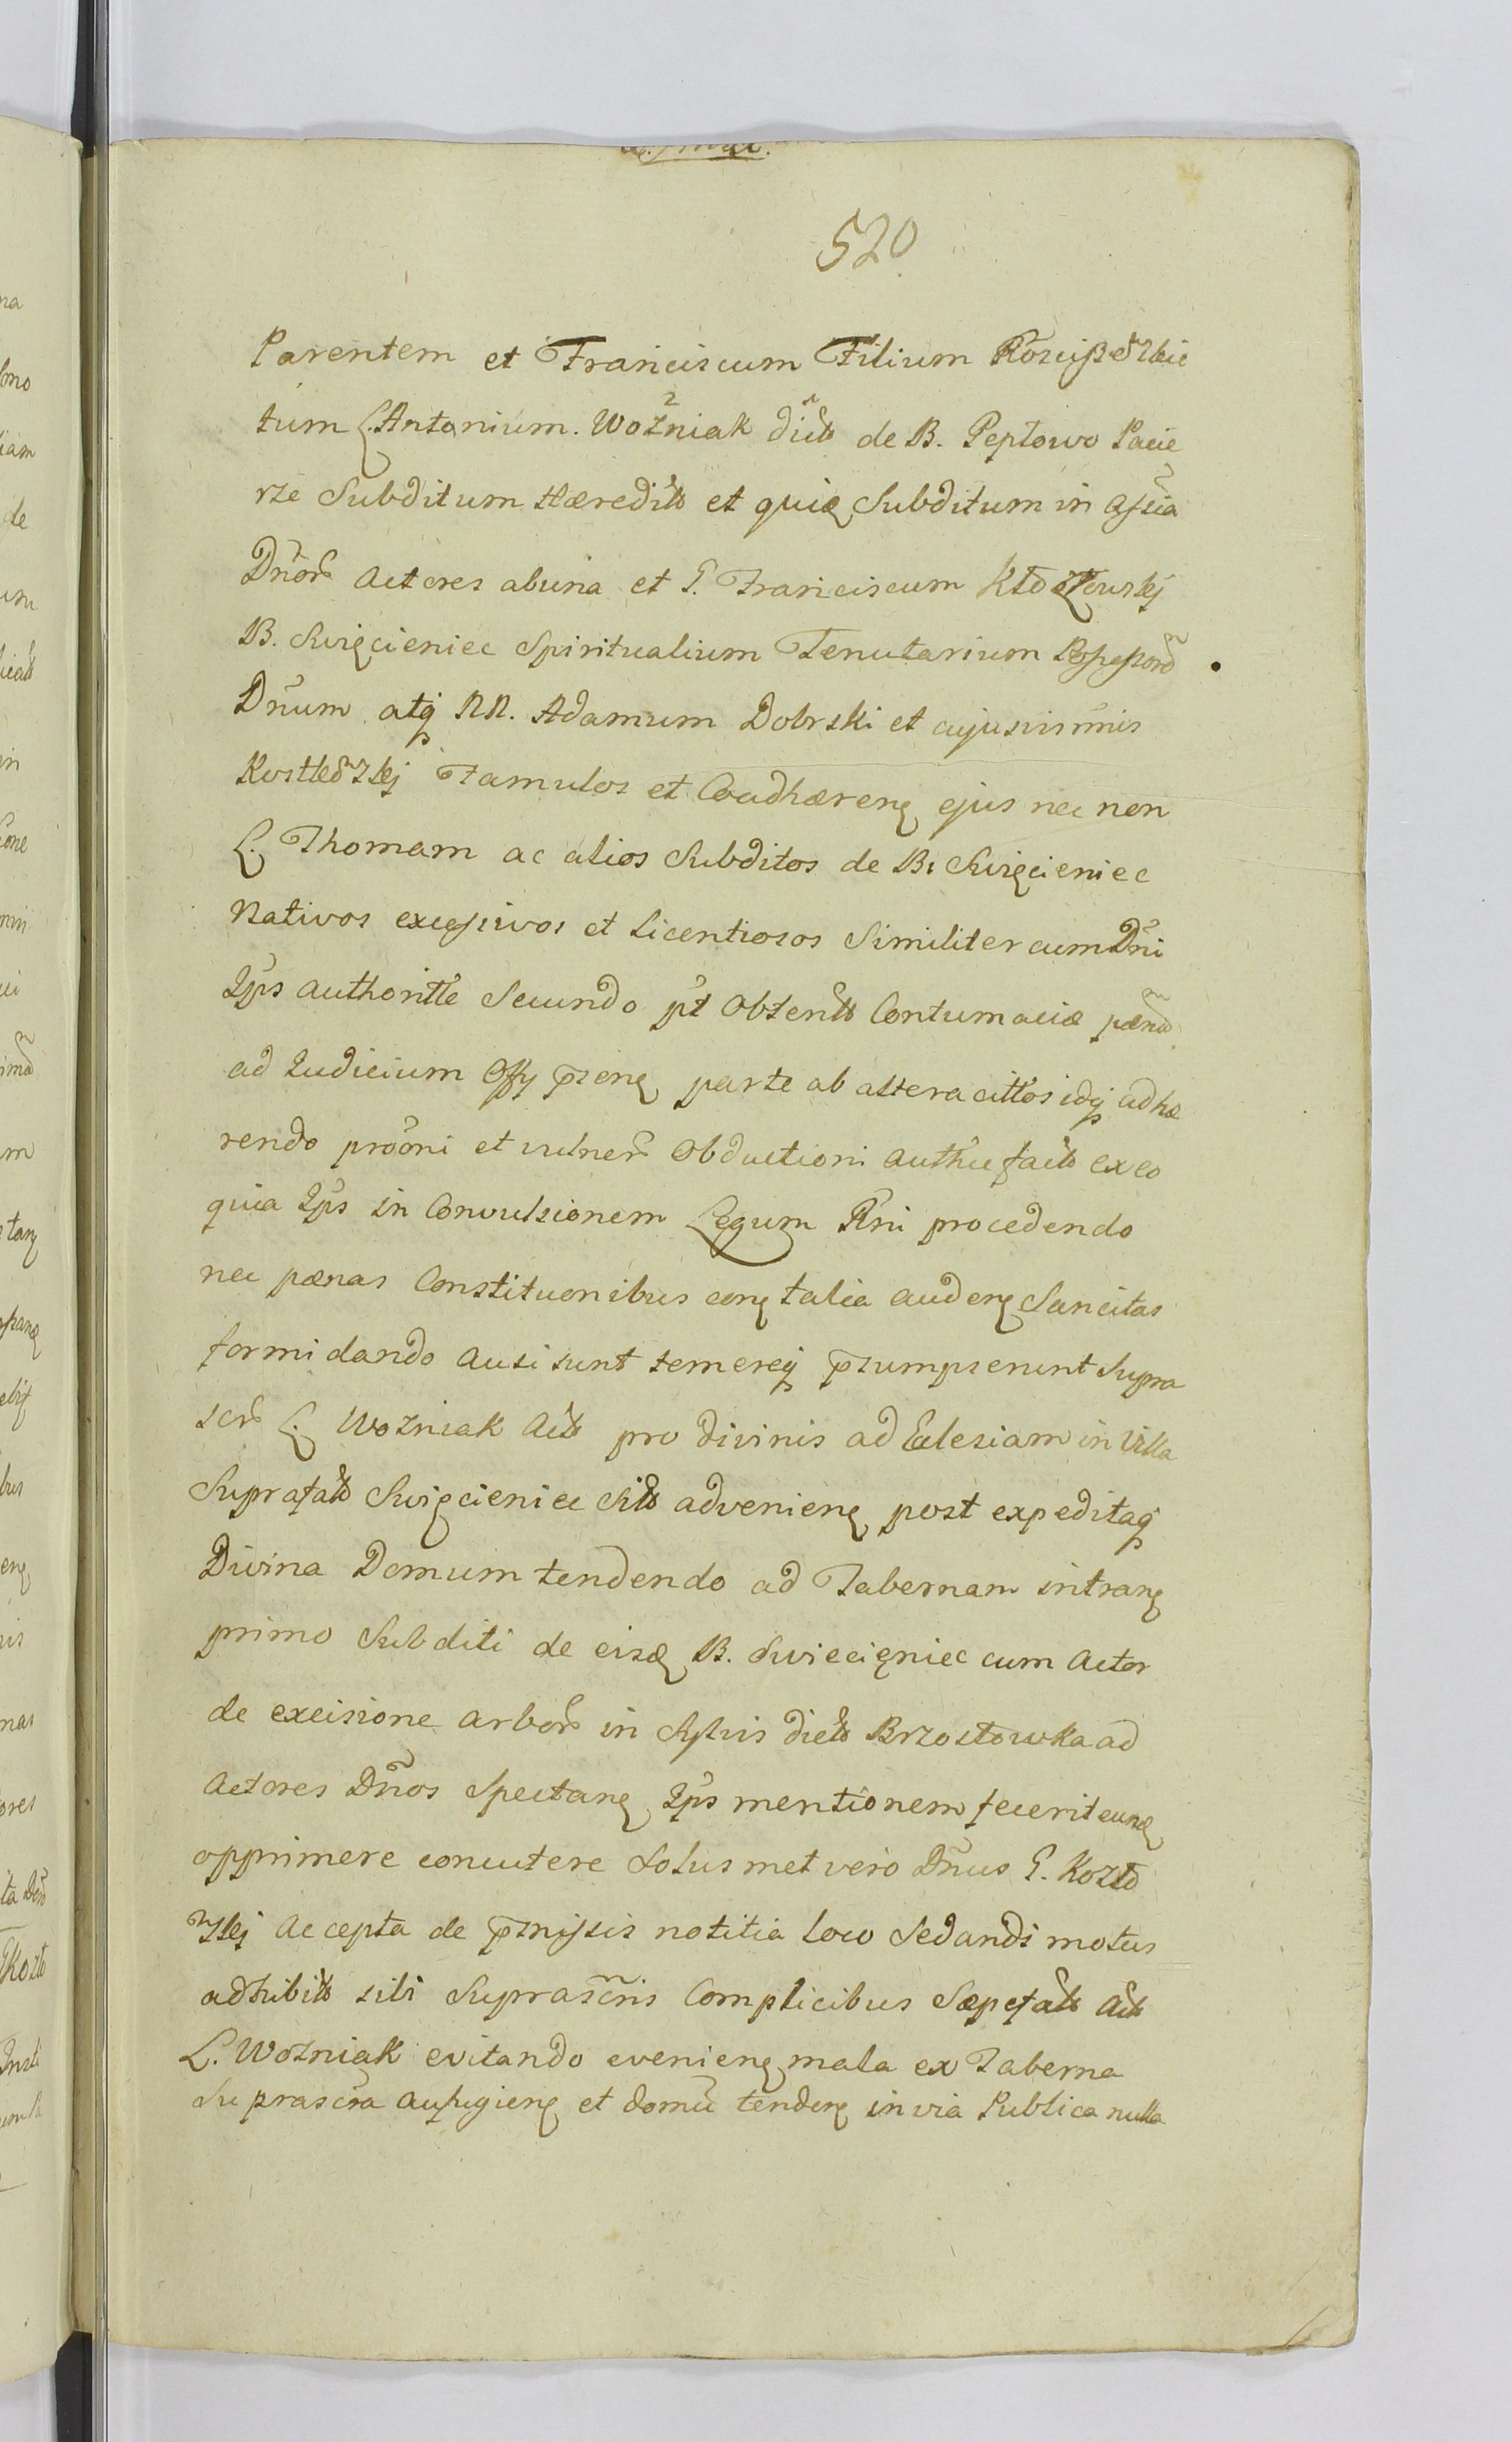 520
Parentem et Franciscum Filium
tum L. Antonium. Wozniak de B. Peptowo Pacie
rze Subditum Hæredit et quiq Subditum in
Dnor Actores abuna et G. Franciscum
B. Swięcieniec Spiritualium Tenutarium
Dnum atq NN. Adamum Dobrski et
Famulos et Coadhæreng ejus nec non
L. Thomam ac alios Subditos de B. Swięcieniec
Nativos excessivos et Licentiosos Similiter cum Dni
Ips authoritte Secundo pt Obtent Contumaciæ pænd
ad Iudicium Offy pseng parte ab altera cittos idq adhæ
rendo prooni et vulner Obductioni exeo
quia Ips in Convulsionem Legum Rni procedendo
nec pænas Constituonibus cong talia audeng Sancitas
formidando Ausi sunt temereq psumpserunt Supra
scr L. Wozniak Act pro divinis ad Eclesiam in Villa
Suprafat Swięcieniec Sit advenieng post expeditaq
Divina Domum tendendo ad Tabernam intrang
primo Subditi de eisq B. Swiecięniec cum Actor
de excisione arbor in Sylvis dict Brzostowka ad
Actores Dnos Spectang Ips mentionem fecerit eunq
opprimere concutere Solus met vero Dnus G. Kozło
wskj Accepta de pmissis notitia loco Sedandi motus
adhibit sibi Suprascris Complicibus Sæpefat Act
L. Wozniak evitando evenieng mala ex Taberna
Suprascra aufugieng et domu tendeng in via Publica nulla